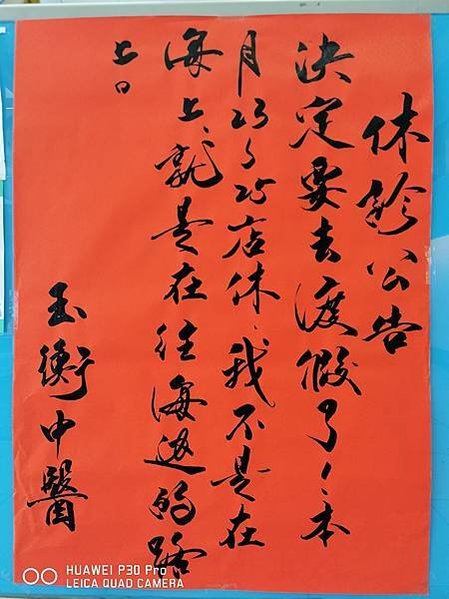 休診公告
決定要去渡假了！本
月23～25店休、我不是在
海上、就是在往海邊的路
上。
玉衡中醫
HUAWEI P30 Pro
LEICA QUAD CAMERA